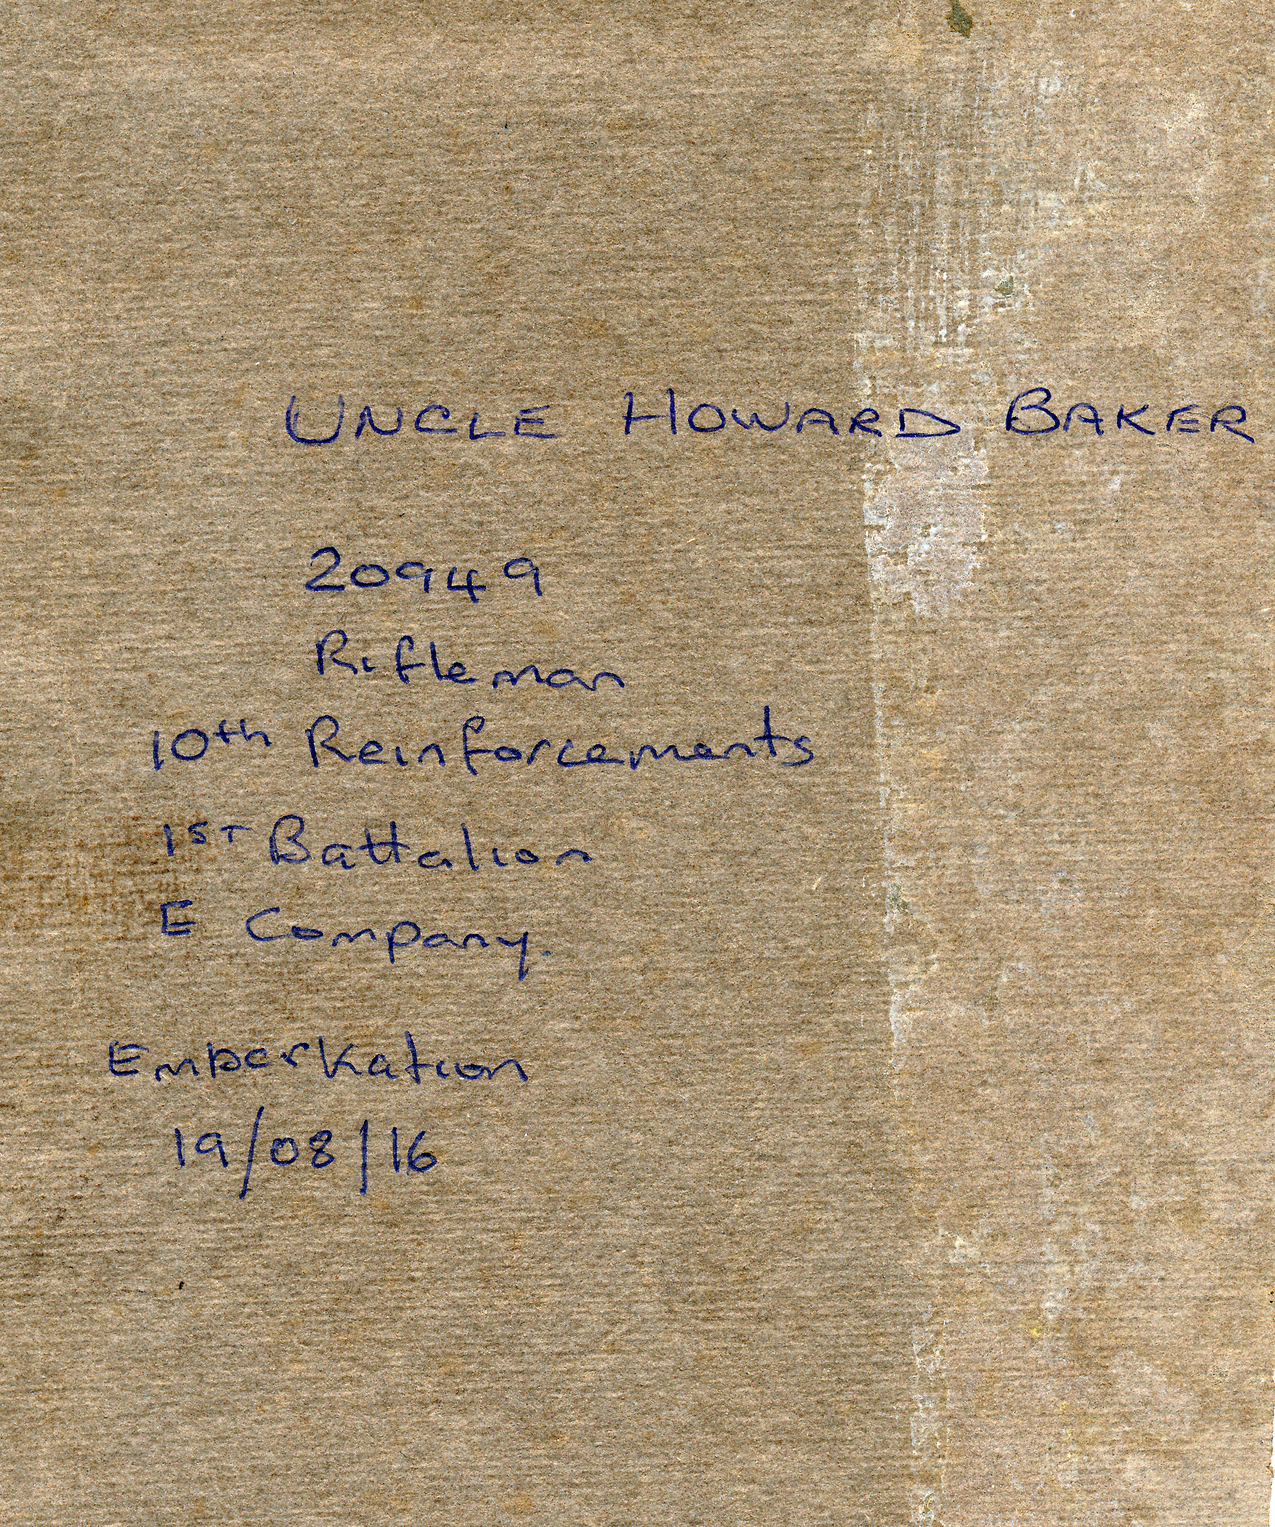 UNCLE HOWARD BAKER
20949
Rifleman
10th Reinforcements
1ST Battalion
E Company.
Embarkation
19/08/16